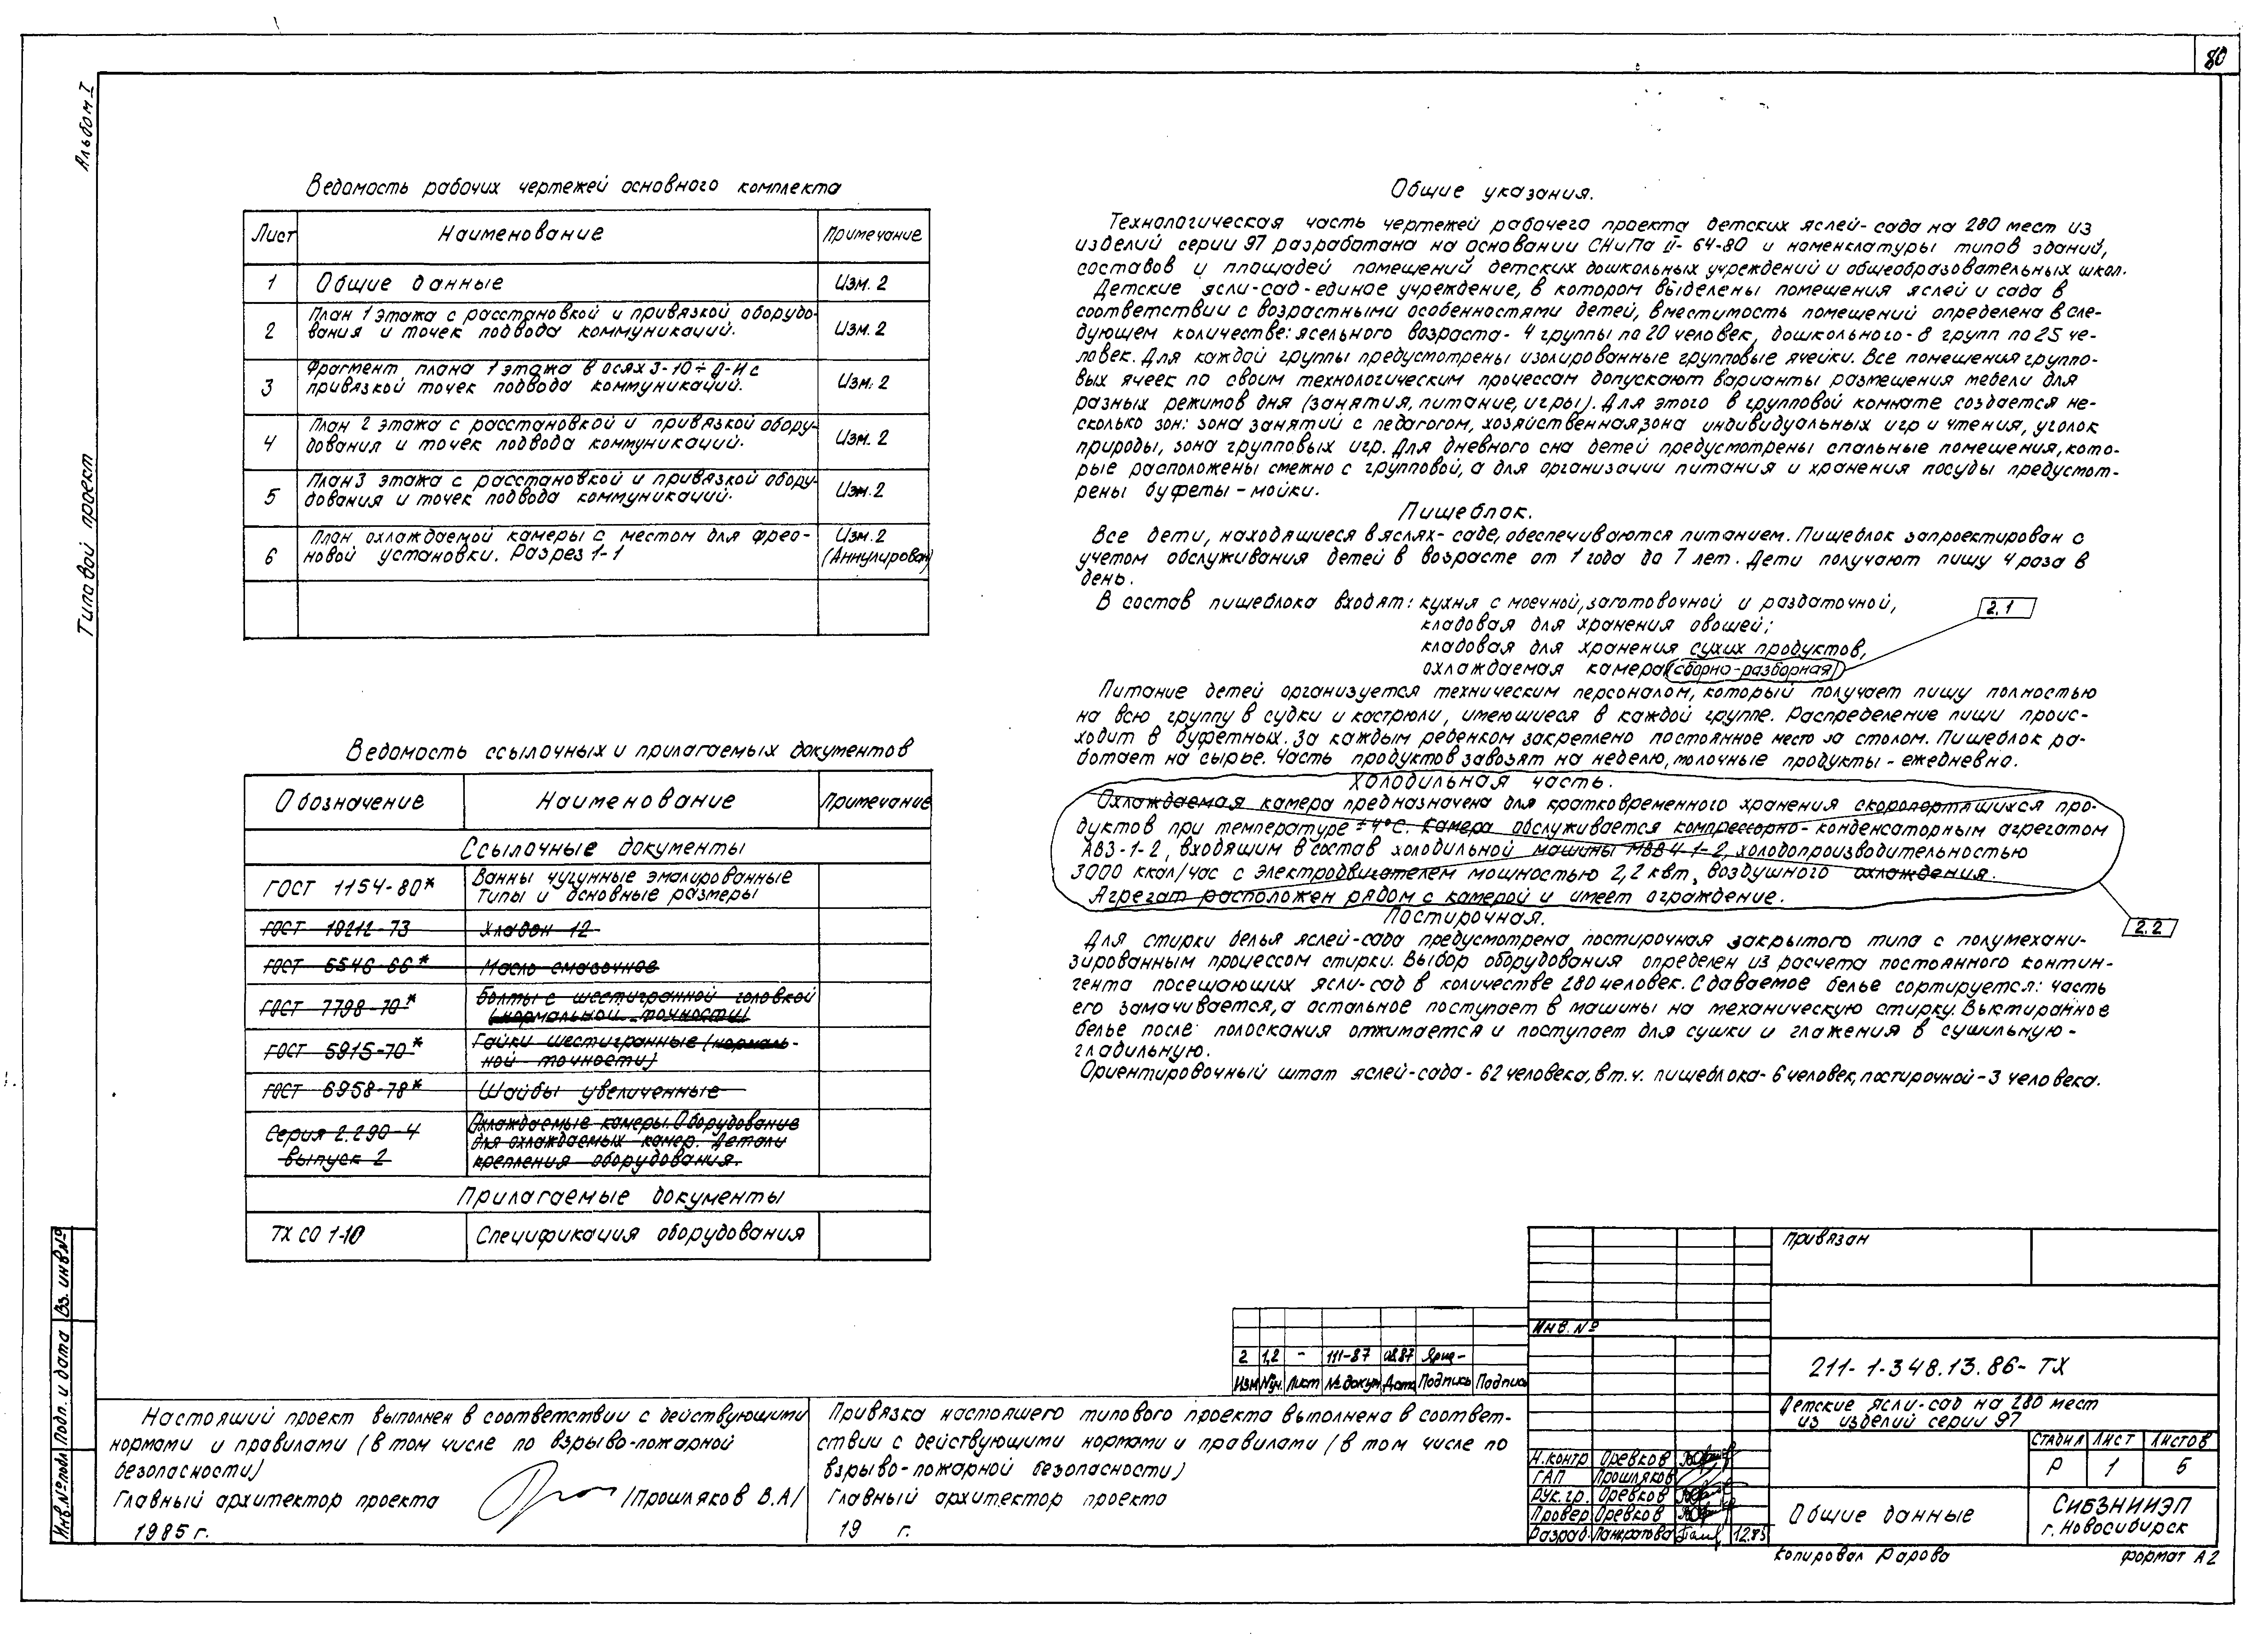 80
Альбом I
Типовой проект
Ведомость рабочих чертежей основного комплекта
Лист Наименование Примечание
1 Общие данные Изм. 2
2 План 1 этажа с расстановкой и привязкой оборудо-
вания и точек подвода коммуникаций. Изм. 2
3 Фрагмент плана 1 этажа в осях 3-10÷Д-И с
привязкой точек подвода коммуникаций. Изм. 2
4 План 2 этажа с расстановкой и привязкой обору-
дования и точек подвода коммуникаций. Изм. 2
5 План 3 этажа с расстановкой и привязкой обору-
дования и точек подвода коммуникаций. Изм. 2
6 План охлаждаемой камеры с местом для фрео-
новой установки. Разрез 1-1 Изм. 2
(Аннулирован)
Ведомость ссылочных и прилагаемых документов
Обозначение Наименование Примечание
Ссылочные документы
ГОСТ 1154-80* Ванны чугунные эмалированные
Типы и основные размеры
ГОСТ 19212-73 Хладон 12
ГОСТ 5546-66* Масло смазочное
ГОСТ 7798-70* Болты с шестигранной головкой
(нормальной точности)
ГОСТ 5915-70* Гайки шестигранные (нормаль-
ной точности)
ГОСТ 6958-78* Шайбы увеличенные
Серия 2.290-4
выпуск 2
Охлаждаемые камеры. Оборудование
для охлаждаемых камер. Детали
крепления оборудования.
Прилагаемые документы
ТХ СО 1-10 Спецификация оборудования
Общие указания.
Технологическая часть чертежей рабочего проекта детских яслей-сада на 280 мест из
изделий серии 97 разработана на основании СНиПа II-64-80 и номенклатуры типов зданий,
составов и площадей помещений детских дошкольных учреждений и общеобразовательных школ.
Детские ясли-сад-единое учреждение, в котором выделены помещения яслей и сада в
соответствии с возрастными особенностями детей, вместимость помещений определена в сле-
дующем количестве: ясельного возраста - 4 группы по 20 человек, дошкольного - 8 групп по 25 че-
ловек. Для каждой группы предусмотрены изолированные групповые ячейки. Все помещения группо-
вых ячеек по своим технологическим процессам допускают варианты размещения мебели для
разных режимов дня (занятия, питание, игры). Для этого в групповой комнате создается не-
сколько зон: зона занятий с педагогом, хозяйственная зона индивидуальных игр и чтения, уголок
природы, зона групповых игр. Для дневного сна детей предусмотрены спальные помещения, кото-
рые расположены смежно с групповой, а для организации питания и хранения посуды предусмот-
рены буфеты - мойки.
Пищеблок.
Все дети, находящиеся в яслях-саде, обеспечиваются питанием. Пищеблок запроектирован с
учетом обслуживания детей в возрасте от 1 года до 7 лет. Дети получают пищу 4 раза в
день.
В состав пищеблока входят: кухня с моечной, заготовочной и раздаточной,
кладовая для хранения овощей;
кладовая для хранения сухих продуктов,
охлаждаемая камера (сборно-разборная)
2.1
Питание детей организуется техническим персоналом, который получает пищу полностью
на всю группу в судки и кастрюли, имеющиеся в каждой группе. Распределение пищи проис-
ходит в буфетных. За каждым ребенком закреплено постоянное место за столом. Пищеблок ра-
ботает на сырье. Часть продуктов завозят на неделю, молочные продукты - ежедневно.
Холодильная часть.
Охлаждаемая камера предназначена для кратковременного хранения скоропортящихся про-
дуктов при температуре ±4°С. Камера обслуживается компрессорно-конденсаторным агрегатом
АВ3-1-2, входящим в состав холодильной машины МВВ4-1-2, холодопроизводительностью
3000 ккал/час с электродвигателем мощностью 2,2 квт, воздушного охлаждения.
Агрегат расположен рядом с камерой и имеет ограждение.
2.2
Постирочная.
Для стирки белья яслей-сада предусмотрена постирочная закрытого типа с полумехани-
зированным процессом стирки. Выбор оборудования определен из расчета постоянного контин-
гента посещающих ясли-сад в количестве 280 человек. Сдаваемое белье сортируется: часть
его замачивается, а остальное поступает в машины на механическую стирку. Выстиранное
белье после полоскания отжимается и поступает для сушки и глажения в сушильную-
гладильную.
Ориентировочный штат яслей-сада - 62 человека, в т.ч. пищеблока - 6 человек, постирочной - 3 человека.
Инв.№ подл Подп. и дата Вз. инв №
Настоящий проект выполнен в соответствии с действующими
нормами и правилами (в том числе по взрыво-пожарной
безопасности)
Главный архитектор проекта /Прошляков В.А/
1985 г.
Привязка настоящего типового проекта выполнена в соответ-
ствии с действующими нормами и правилами (в том числе по
взрыво-пожарной безопасности)
Главный архитектор проекта
19 г.
2 1,2 - 111-87 08.87
Изм №уч. Лист № докум Дата Подпись Подпись
Привязан
Инв. №
211-1-348.13.86-ТХ
Детские ясли-сад на 280 мест
из изделий серии 97
Стадия Лист Листов
Р 1 5
Общие данные
СИБЗНИИЭП
г. Новосибирск
Н.контр Оревков
ГАП Прошляков
Рук.гр. Оревков
Провер Оревков
Разраб. Панкратова 12.85
Копировал Рарова
формат А2